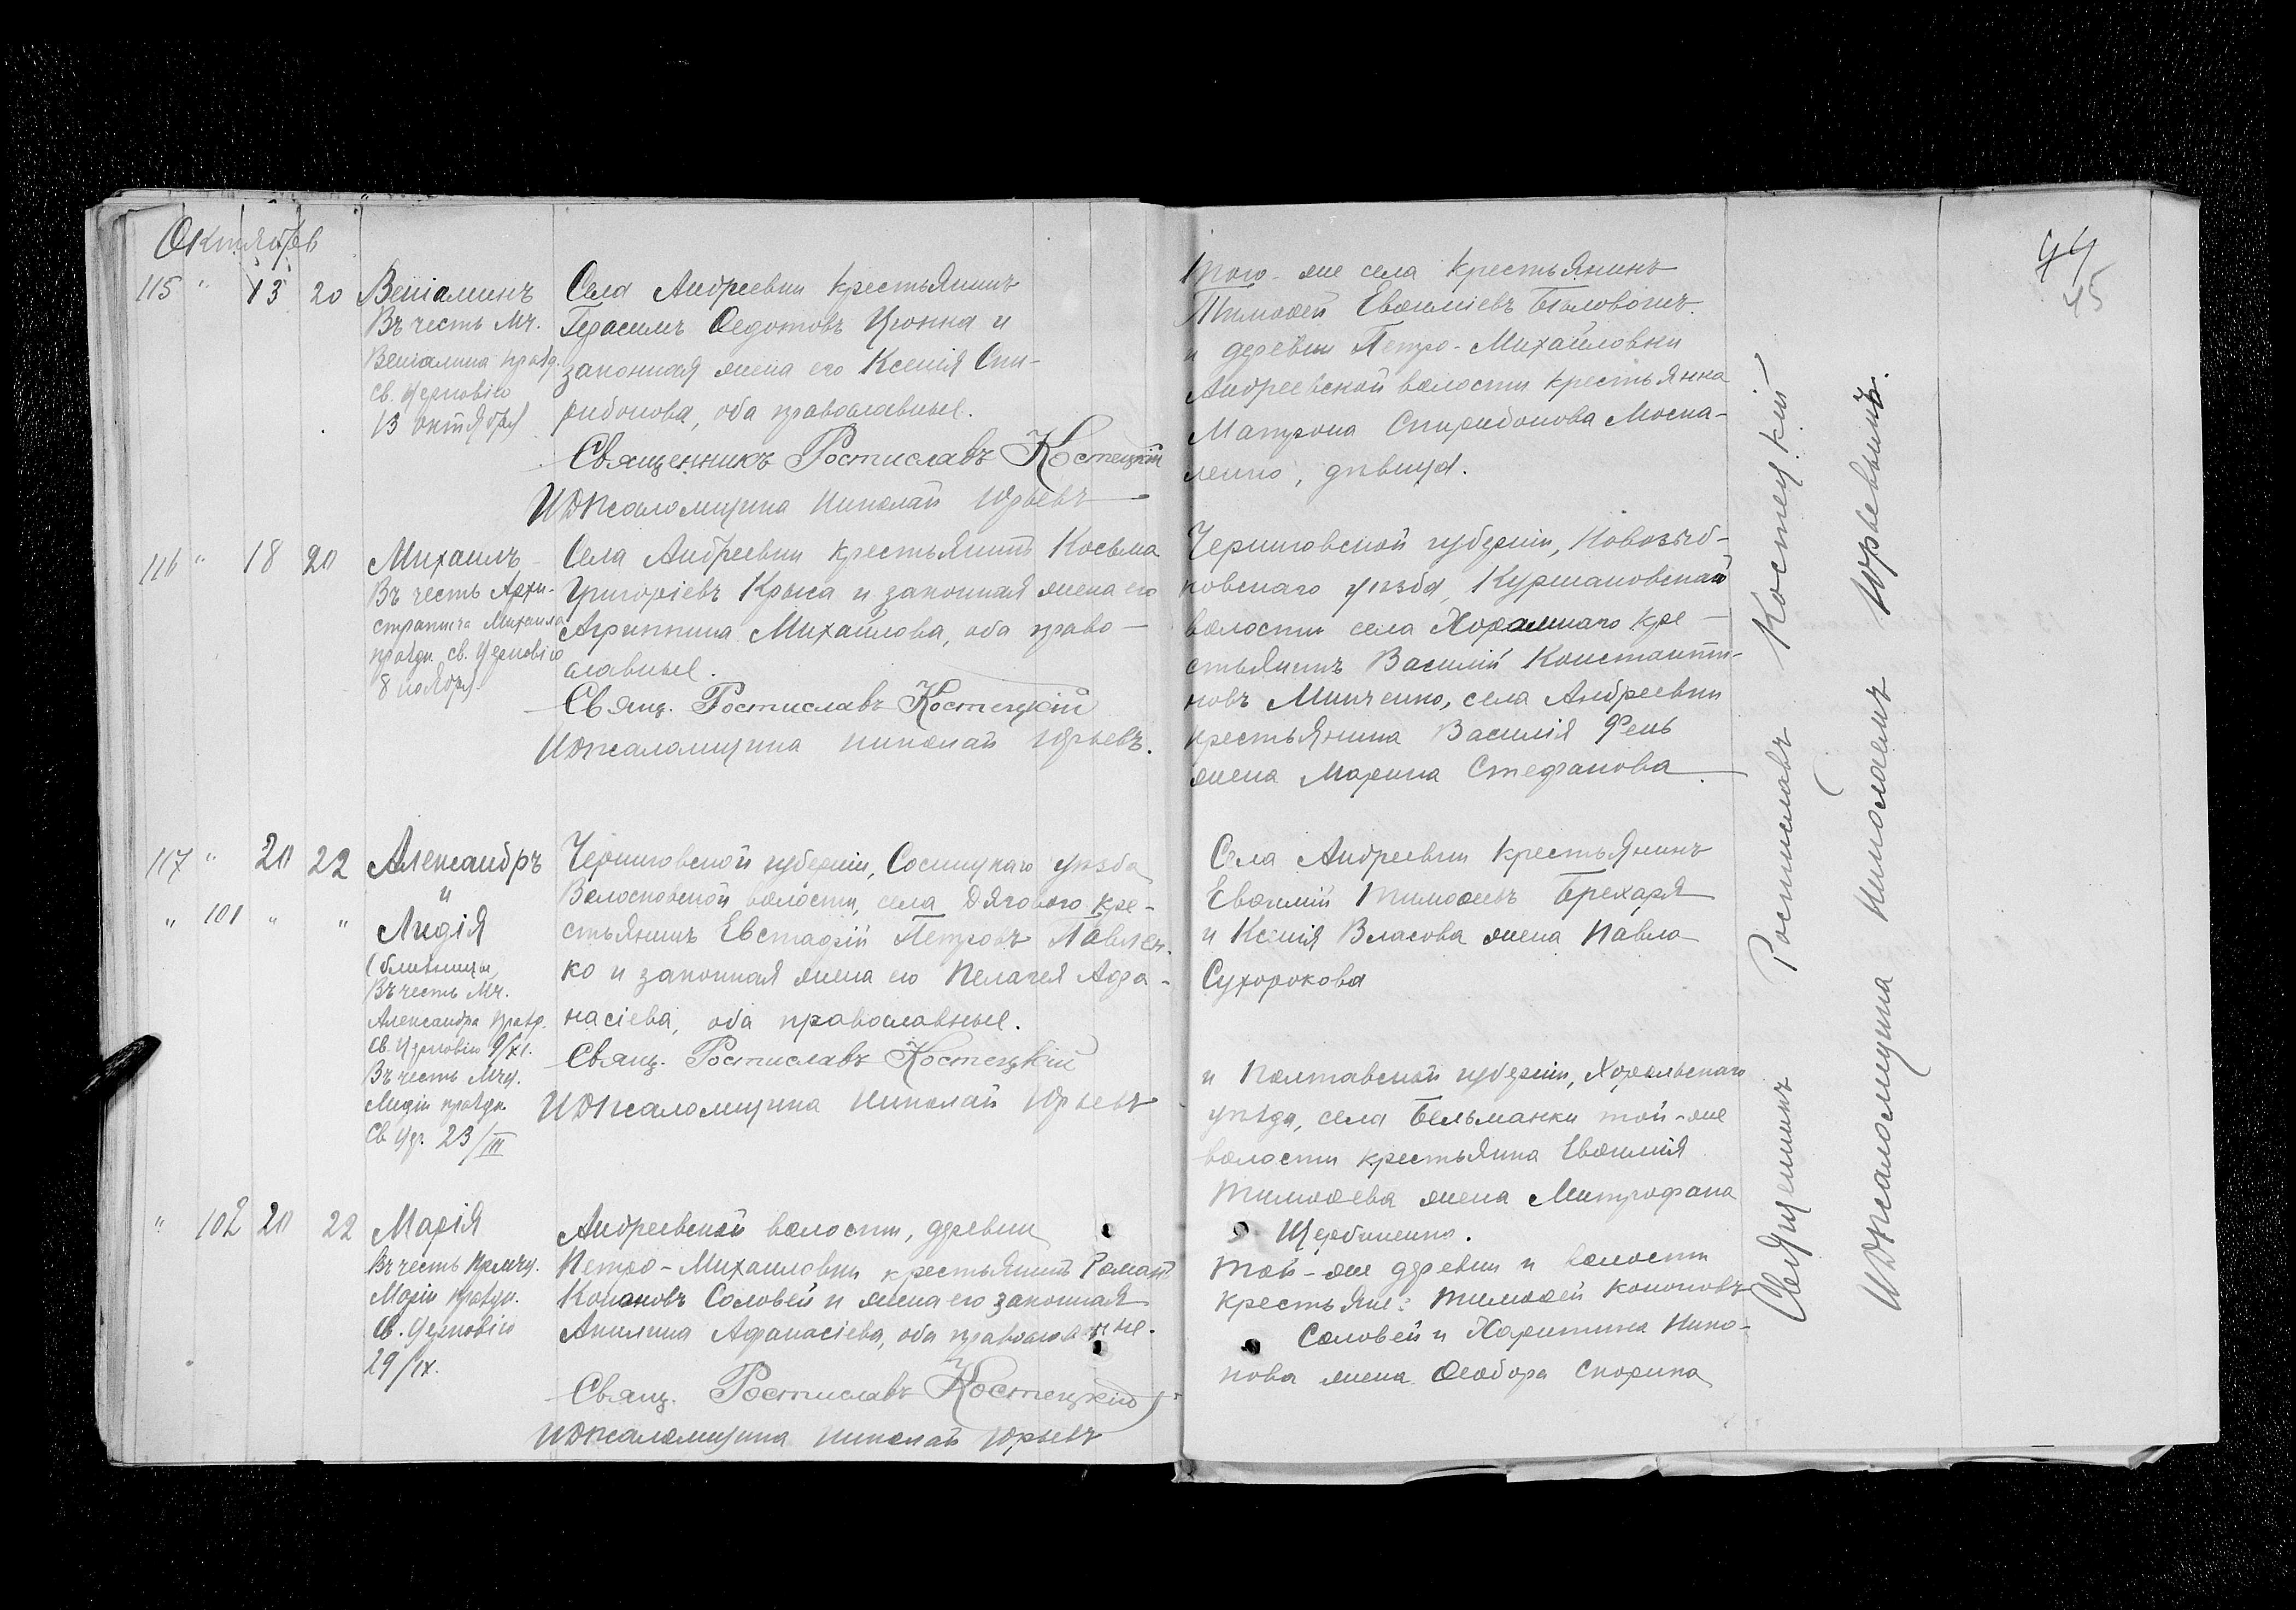 Октябрь
44
45
115 " 13 20 Веніаминъ
Въ честь Мч.
Веніамина празд.
Св. Церковію
13 октября
Села Андреевки крестьянинъ
Герасимъ Ѳедотовъ Цюпка и
законная жена его Ксенія Спи-
ридонова, оба православные.
Священникъ Ростиславъ Костецкій
И.д. псаломщика Николай Юрьевъ
того-же села крестьянинъ
Тимоѳей Евѳиміевъ Біловолъ
и деревни Петро-Михайловки
Андреевской волости крестьянка
Матрона Спиридонова Моспа-
ленко, дѣвица.
116 " 18 20 Михаилъ
Въ честь Архи-
стратига Михаила
праздн. св. Церковію
8 ноября
Села Андреевки крестьянинъ Косьма
Григоріевъ Крыса и законная жена его
Агриппина Михайлова, оба право-
славные.
Свящ. Ростиславъ Костецкій
И.д. псаломщика Николай Юрьевъ.
Черниговской губерніи, Новозыб-
ковскаго уѣзда, Куршановской
волости села Хоромнаго кре-
стьянинъ Василій Константи-
новъ Минченко, села Андреевки
крестьянина Василія Фень
жена Марина Стефанова
117 " 20 22 Александръ
и
" 101 " " Лидія
(близнецы)
Въ честь Мч.
Александра празд.
Св. Церковію 9/XI.
Въ честь Мчц.
Лидіи праздн.
Св. Цер. 23/III
Черниговской губерніи, Сосницкаго уѣзда
Волосковской волости, села Дягового кре-
стьянинъ Евстафій Петровъ Павлен-
ко и законная жена его Пелагея Афа-
насіева, оба православные.
Свящ. Ростиславъ Костецкій
И.д. псаломщика Николай Юрьевъ
Села Андреевки крестьянинъ
Евѳимій Тимоѳеевъ Брехаря
и Ксенія Власова жена Павла
Сухорокова
и Полтавской губерніи, Хорольскаго
уѣзда, села Бельманки той-же
волости крестьянина Евѳимія
Тимоѳеева жена Митрофана
Щербиненко.
" 102 20 22 Марія
Въ честь Прмчц.
Маріи праздн.
Св. Церковію
29/IX.
Андреевской волости, деревни
Петро-Михайловки крестьянинъ Романъ
Кононовъ Соловей и жена его законная
Акилина Афанасіева, оба православные.
Свящ. Ростиславъ Костецкій
И.д. псаломщика Николай Юрьевъ
Той-же деревни и волости
крестьяне: Тимоѳей Кононовъ
Соловей и Харитина Нико-
нова жена Ѳеодора Скорика
Священникъ Ростиславъ Костецкій
И.д. псаломщика Николай Юрьевъ.